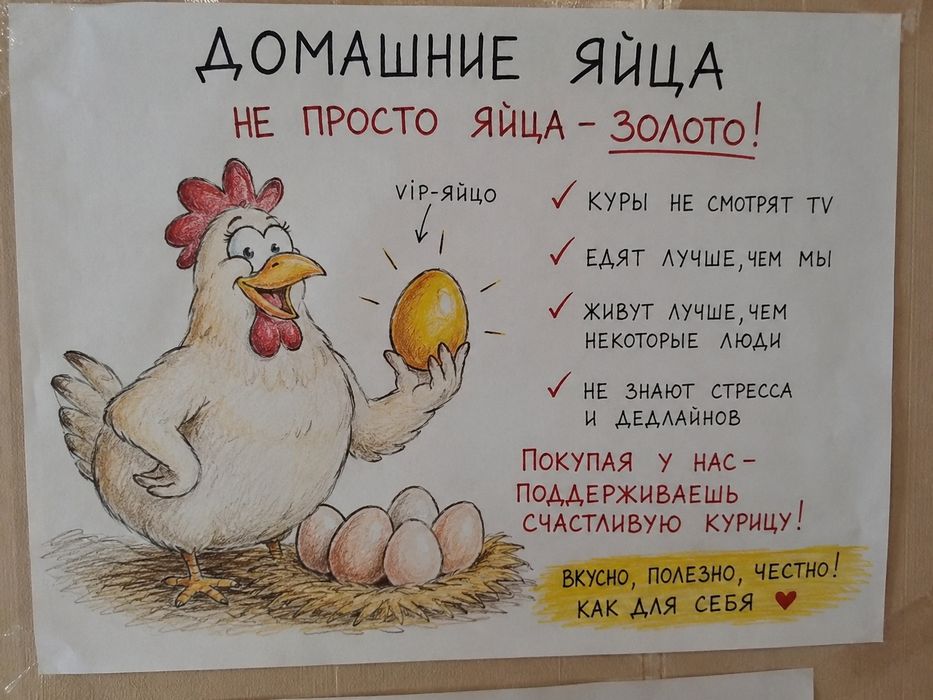 ДОМАШНИЕ ЯЙЦА
НЕ ПРОСТО ЯЙЦА – ЗОЛОТО!
VIP-ЯЙЦО
✓ КУРЫ НЕ СМОТРЯТ TV
✓ ЕДЯТ ЛУЧШЕ, ЧЕМ МЫ
✓ ЖИВУТ ЛУЧШЕ, ЧЕМ
НЕКОТОРЫЕ ЛЮДИ
✓ НЕ ЗНАЮТ СТРЕССА
И ДЕДЛАЙНОВ
ПОКУПАЯ У НАС –
ПОДДЕРЖИВАЕШЬ
СЧАСТЛИВУЮ КУРИЦУ!
ВКУСНО, ПОЛЕЗНО, ЧЕСТНО!
КАК ДЛЯ СЕБЯ ♥